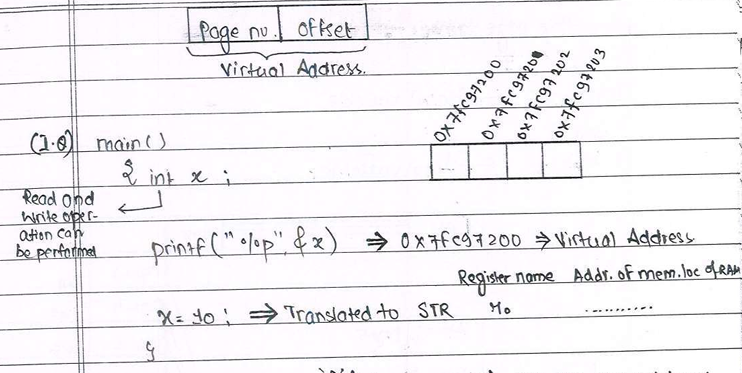 Page no. offset
Virtual Address.
0x7fc97200 0x7fc97201 0x7fc97202 0x7fc97203
(I.Q) main()
{ int x ;
Read and
Write oper-
ation can
be performed
printf("%p", &x) ⇒ 0x7fc97200 ⇒ Virtual Address
Register name Addr. of mem. loc of RAM
x = 10 ; ⇒ Translated to STR r0 ...........
}